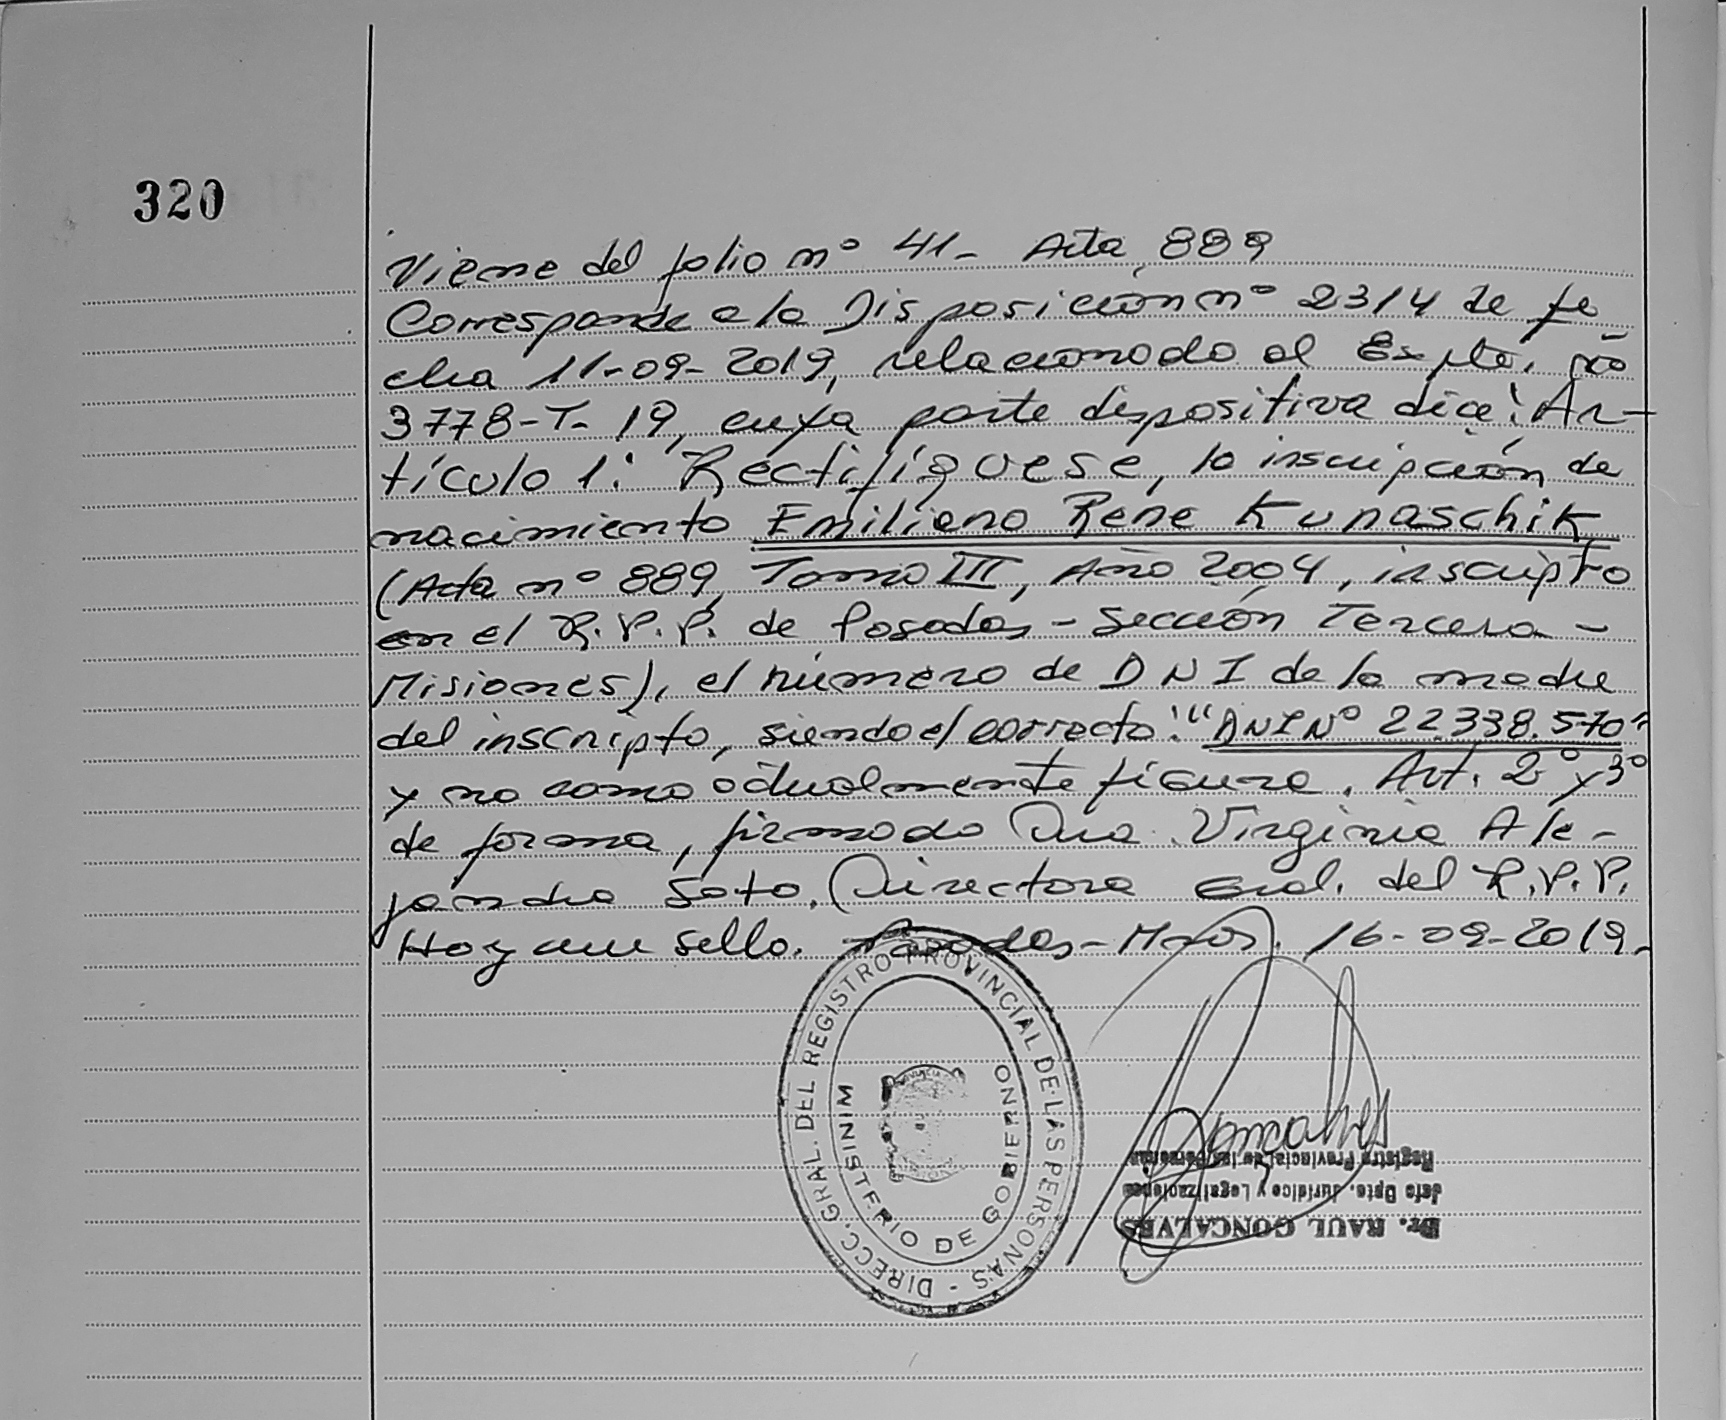 320
Viene del folio nº 41- Acta 889
Corresponde a la Disposición nº 2314 de fe
cha 11-09-2019, relacionado al Expte. nro
3778-T-19, cuya parte dispositiva dice: Ar-
tículo 1: Rectifíquese, la inscripción de
nacimiento Emiliano Rene Kunaschik
(Acta nº 889, Tomo III, Año 2004, inscripto
en el R.P.P. de Posadas - Sección Tercera -
Misiones), el número de DNI de la madre
del inscripto, siendo el correcto: "DNI Nº 22.338.570"
y no como actualmente figura. Art. 2º y 3º
de forma, firmado Dra. Virginia Ale-
jandra Soto. Directora Gral. del R.P.P.
Hay un sello. Posadas - Mnes. 16-09-2019.
DIRECC. GRAL. DEL REGISTRO PROVINCIAL DE LAS PERSONAS -
MINISTERIO DE GOBIERNO
Goncalves
Dr. RAUL GONCALVES
Jefe Dpto. Jurídico y Legalizaciones
Registro Provincial de las Personas